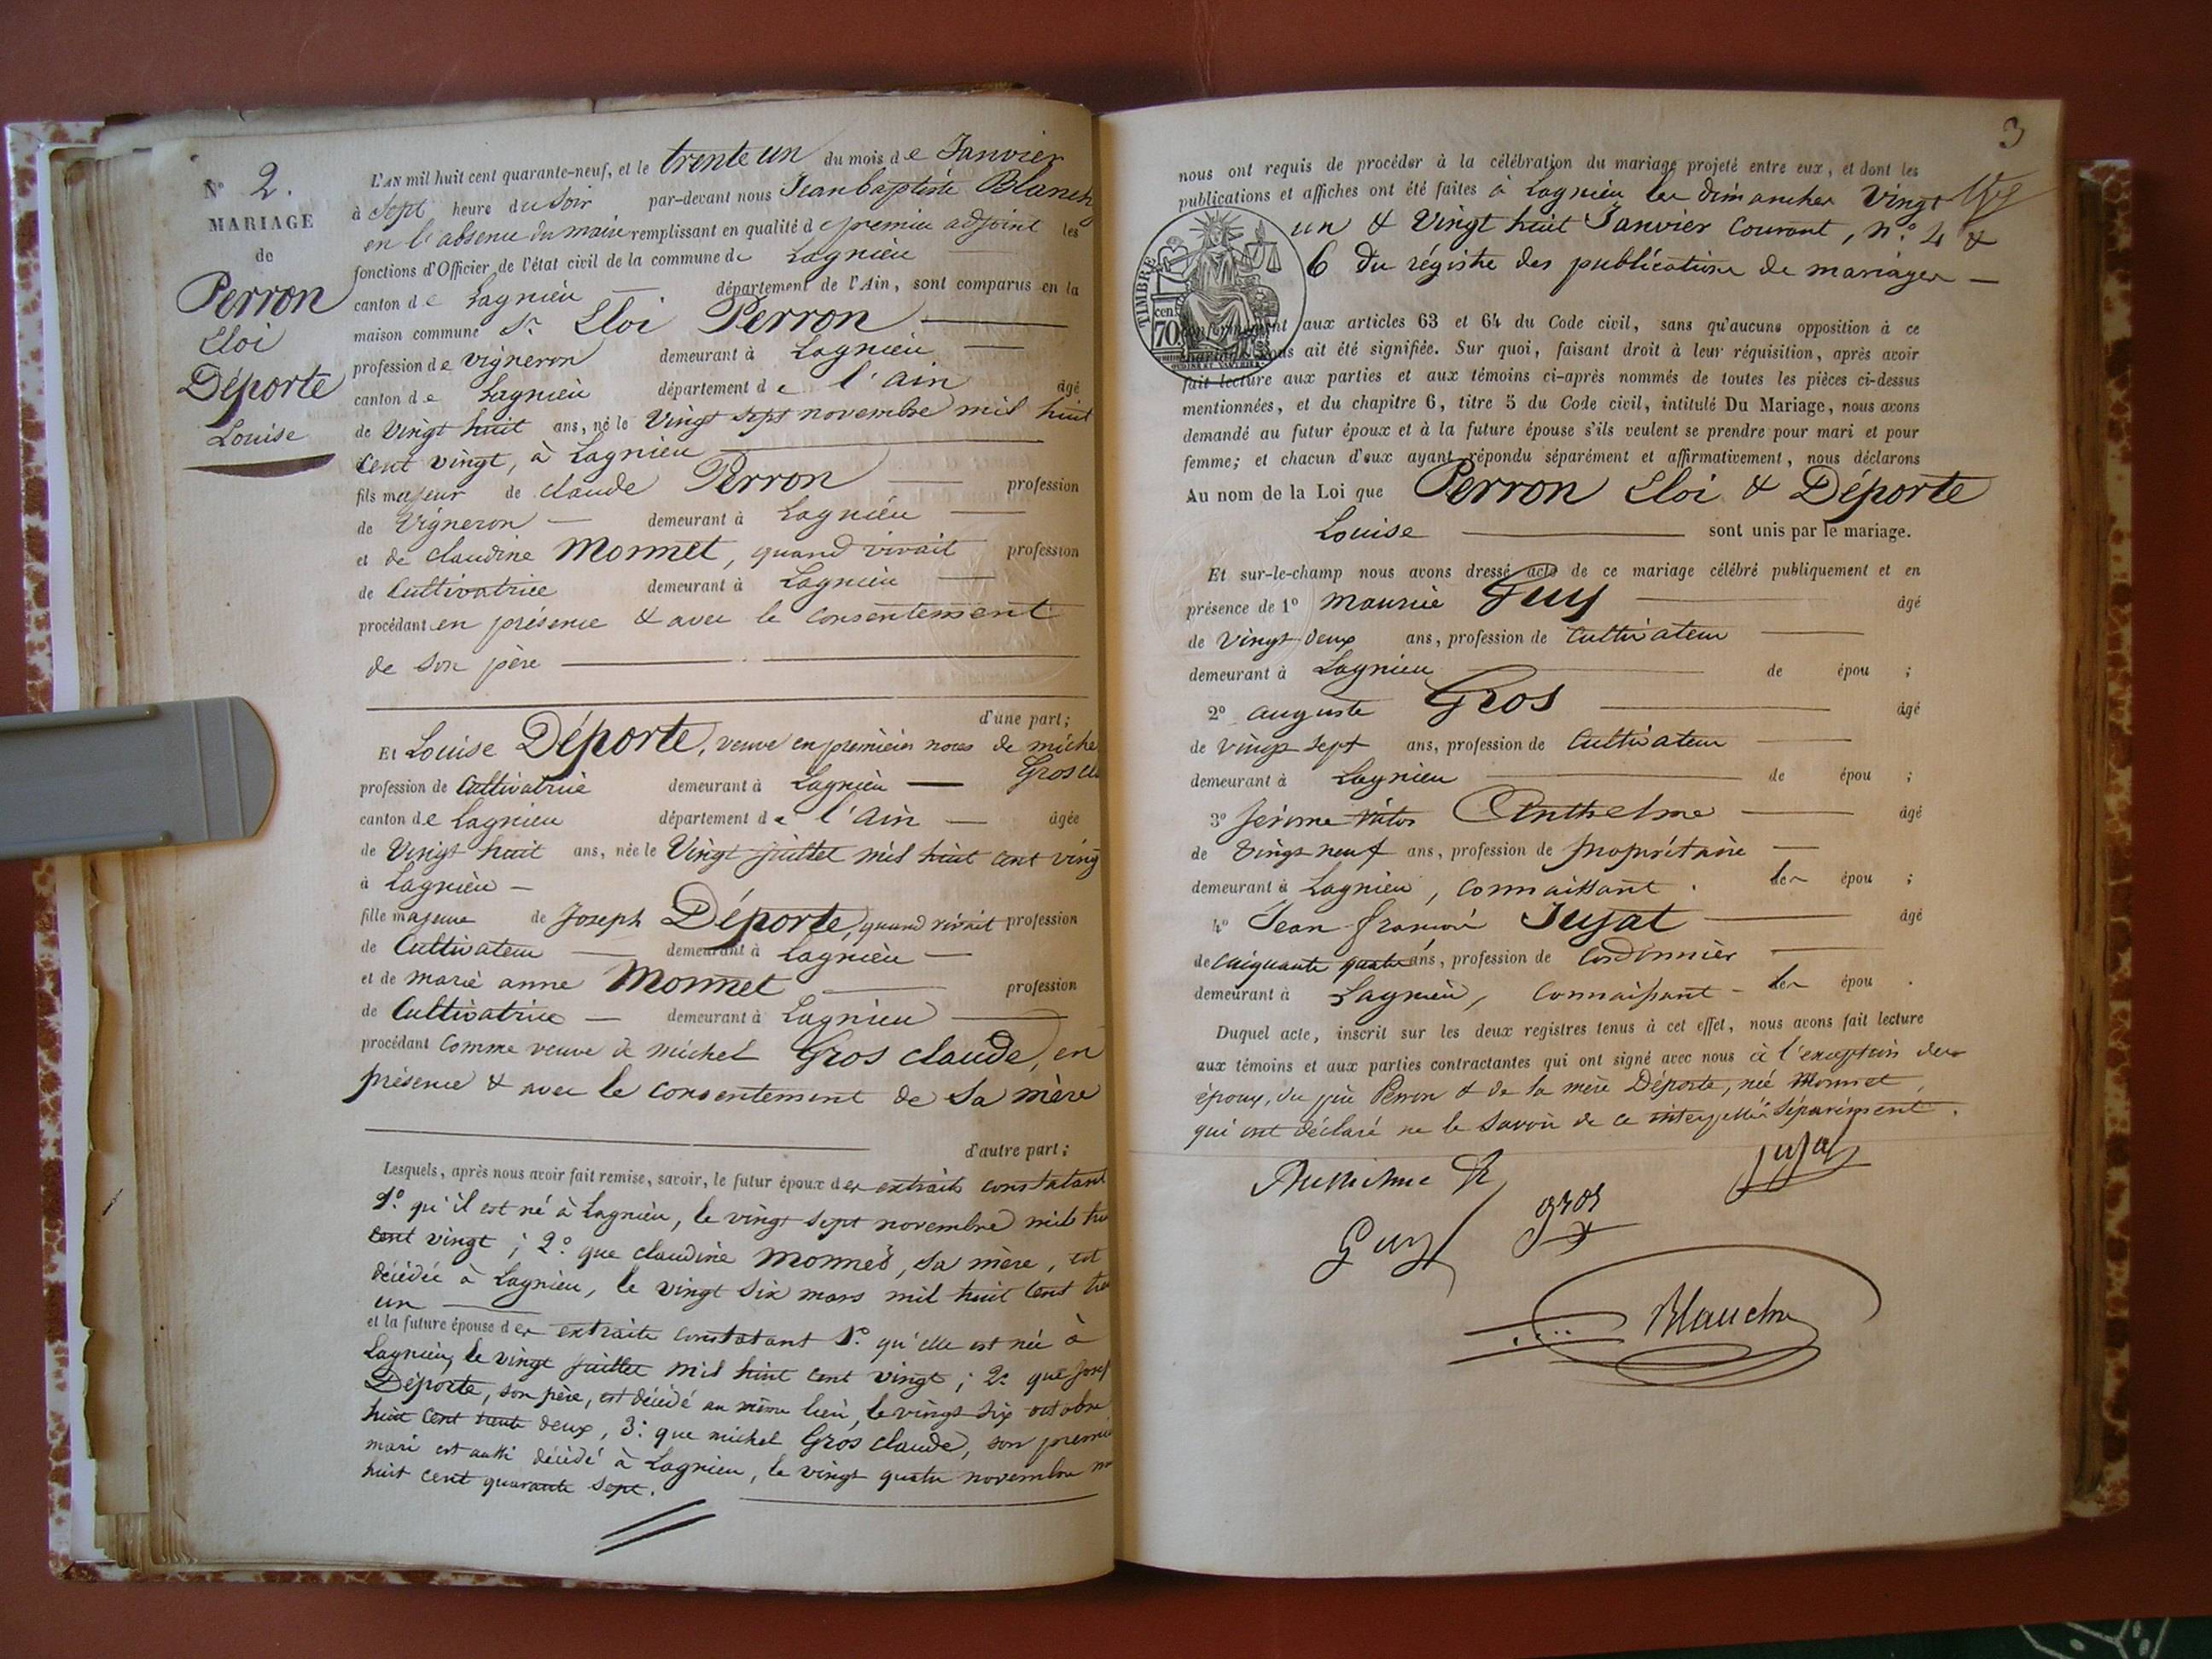 N° 2.
MARIAGE
de
Perron
Eloi
Déporte
Louise
L'AN mil huit cent quarante-neuf, et le trente un du mois de Janvier
à Sept heure du Soir par-devant nous Jean baptiste Blanch
en l'absence du maire remplissant en qualité de premier adjoint les
fonctions d'Officier de l'état civil de la commune de Lagnieu
canton de Lagnieu département de l'Ain, sont comparus en la
maison commune Sr Eloi Perron
profession de vigneron demeurant à Lagnieu
canton de Lagnieu département de l'ain âgé
de Vingt huit ans, né le Vingt sept novembre mil huit
cent vingt, à Lagnieu
fils majeur de claude Perron profession
de Vigneron demeurant à Lagnieu
et de claudine Monnet, quand vivait profession
de Cultivatrice demeurant à Lagnieu
procédant en présence & avec le consentement
de son père
d'une part;
Et Louise Déporte, veuve en premières noces de miche
Gros cla
profession de Cultivatrice demeurant à Lagnieu
canton de Lagnieu département de l'Ain âgée
de Vingt huit ans, née le Vingt juillet mil huit cent ving
à Lagnieu
fille majeure de Joseph Déporte, quand vivait profession
de Cultivateur demeurant à Lagnieu
et de marie anne Monnet profession
de Cultivatrice demeurant à Lagnieu
procédant comme veuve de michel Gros claude, en
présence & avec le consentement de sa mère
d'autre part;
Lesquels, après nous avoir fait remise, savoir, le futur époux des extraits constatant
1° qu'il est né à Lagnieu, le vingt sept novembre mil hu
cent vingt; 2° que claudine Monnet, sa mère, est
décédée à Lagnieu, le vingt six mars mil huit cent tre
un
et la future épouse des extraits constatant 1° qu'elle est née à
Lagnieu, le vingt juillet mil huit cent vingt; 2° que Josep
Déporte, son père, est décédé au même lieu, le vingt six octobre
huit cent trente deux, 3° que michel Gros claude, son premier
mari est aussi décédé à Lagnieu, le vingt quatre novembre m
huit cent quarante sept.
3
nous ont requis de procéder à la célébration du mariage projeté entre eux, et dont les
publications et affiches ont été faites à Lagnieu les dimanches Vingt
un & Vingt huit Janvier courant, n°. 4 &
6 du régistre des publications de mariages
TIMBRE
cen.
70
conformément aux articles 63 et 64 du Code civil, sans qu'aucune opposition à ce
mariage nous ait été signifiée. Sur quoi, faisant droit à leur réquisition, après avoir
fait lecture aux parties et aux témoins ci-après nommés de toutes les pièces ci-dessus
mentionnées, et du chapitre 6, titre 5 du Code civil, intitulé Du Mariage, nous avons
demandé au futur époux et à la future épouse s'ils veulent se prendre pour mari et pour
femme; et chacun d'eux ayant répondu séparément et affirmativement, nous déclarons
Au nom de la Loi que Perron Eloi & Déporte
Louise sont unis par le mariage.
Et sur-le-champ nous avons dressé acte de ce mariage célébré publiquement et en
présence de 1° maurice Guy âgé
de vingt deux ans, profession de Cultivateur
demeurant à Lagnieu de épou ;
2° auguste Gros âgé
de vingt sept ans, profession de Cultivateur
demeurant à Lagnieu de épou ;
3° Jérome Anthelme âgé
de Vingt neuf ans, profession de propriétaire
demeurant à Lagnieu, connaissant les épou ;
4° Jean françois Jujat âgé
de cinquante quatre ans, profession de Cordonnier
demeurant à Lagnieu, connaissant les épou .
Duquel acte, inscrit sur les deux registres tenus à cet effet, nous avons fait lecture
aux témoins et aux parties contractantes qui ont signé avec nous à l'exception des
époux, du père Perron & de la mère Déporte, née Monnet
qui ont déclaré ne le savoir de ce interpellés séparément.
Jujat
Guy
gros
Blanchy